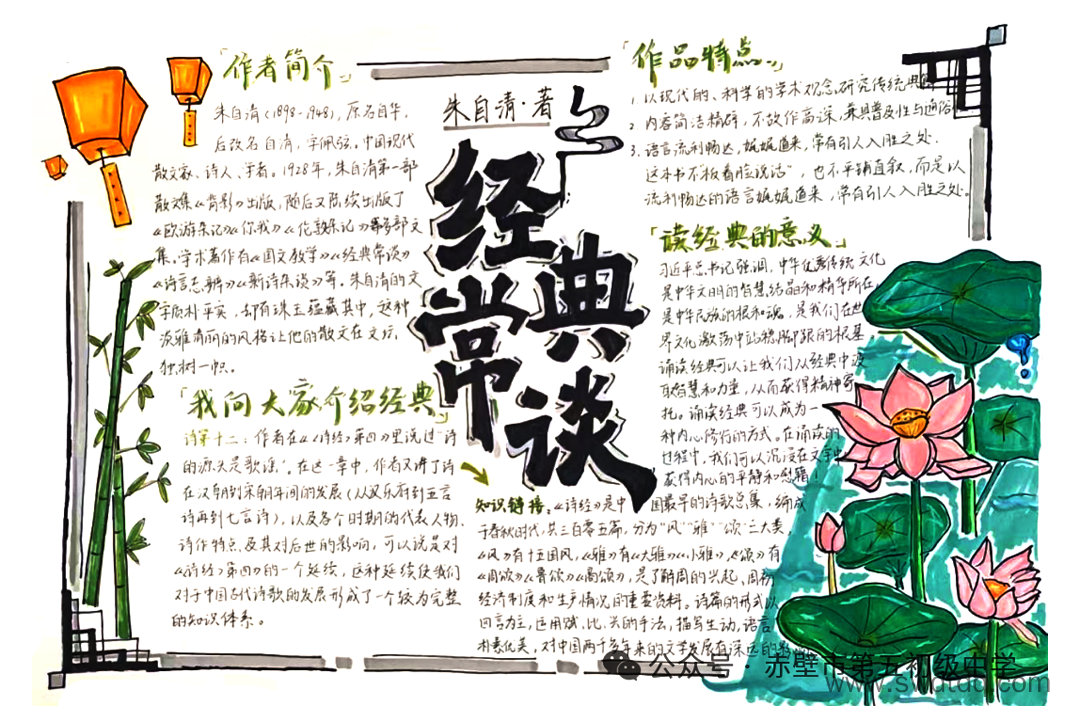 「作者简介」
朱自清(1898-1948)，原名自华，
后改名自清，字佩弦。中国现代
散文家、诗人、学者。1928年，朱自清第一部
散文集《背影》出版，随后又陆续出版了
《欧游杂记》《你我》《伦敦杂记》等多部文
集，学术著作有《国文教学》《经典常谈》
《诗言志辨》《新诗杂谈》等。朱自清的文
字质朴平实，却有珠玉蕴藏其中，这种
淡雅清丽的风格让他的散文在文坛，
独树一帜。
「我向大家介绍经典」
诗第十二：作者在《诗经》第四》里说过"诗
的源头是歌谣"。在这一章中，作者又讲了诗
在汉朝到宋朝年间的发展(从汉乐府到五言
诗再到七言诗)，以及各个时期的代表人物、
诗作特点及其对后世的影响，可以说是对
《诗经》第四》的一个延续，这种延续使我们
对于中国古代诗歌的发展形成了一个较为完整
的知识体系。
朱自清·著
经典常谈
「作品特点」
1. 以现代的、科学的学术观念，研究传统典
2. 内容简洁精辟，不故作高深，兼具普及性与通俗
3. 语言流利畅达，娓娓道来，常有引人入胜之处.
这本书不"板着脸说话"，也不平铺直叙，而是以
流利畅达的语言娓娓道来，常有引人入胜之处。
「读经典的意义」
习近平总书记强调，中华优秀传统文化
是中华文明的智慧结晶和精华所在，
是中华民族的根和魂，是我们在世
界文化激荡中站稳脚跟的根基
诵读经典可以让我们从经典中汲
取智慧和力量，从而获得精神寄
托。诵读经典可以成为一
种内心修行的方式。在诵读的
过程中，我们可以沉浸在文字中
获得内心的平静和慰藉！
知识链接：《诗经》是中国最早的诗歌总集，编成
于春秋时代，共三百零五篇，分为"风""雅""颂"三大类
《风》有十五国风，《雅》有《大雅》《小雅》，《颂》有
《周颂》《鲁颂》《商颂》，是了解周的兴起、周初
经济制度和生产情况的重要资料。诗篇的形式以
四言为主，运用赋、比、兴的手法，描写生动，语言
朴素优美，对中国两千多年来的文学发展有深远的影
公众号·赤壁市第五初级中学